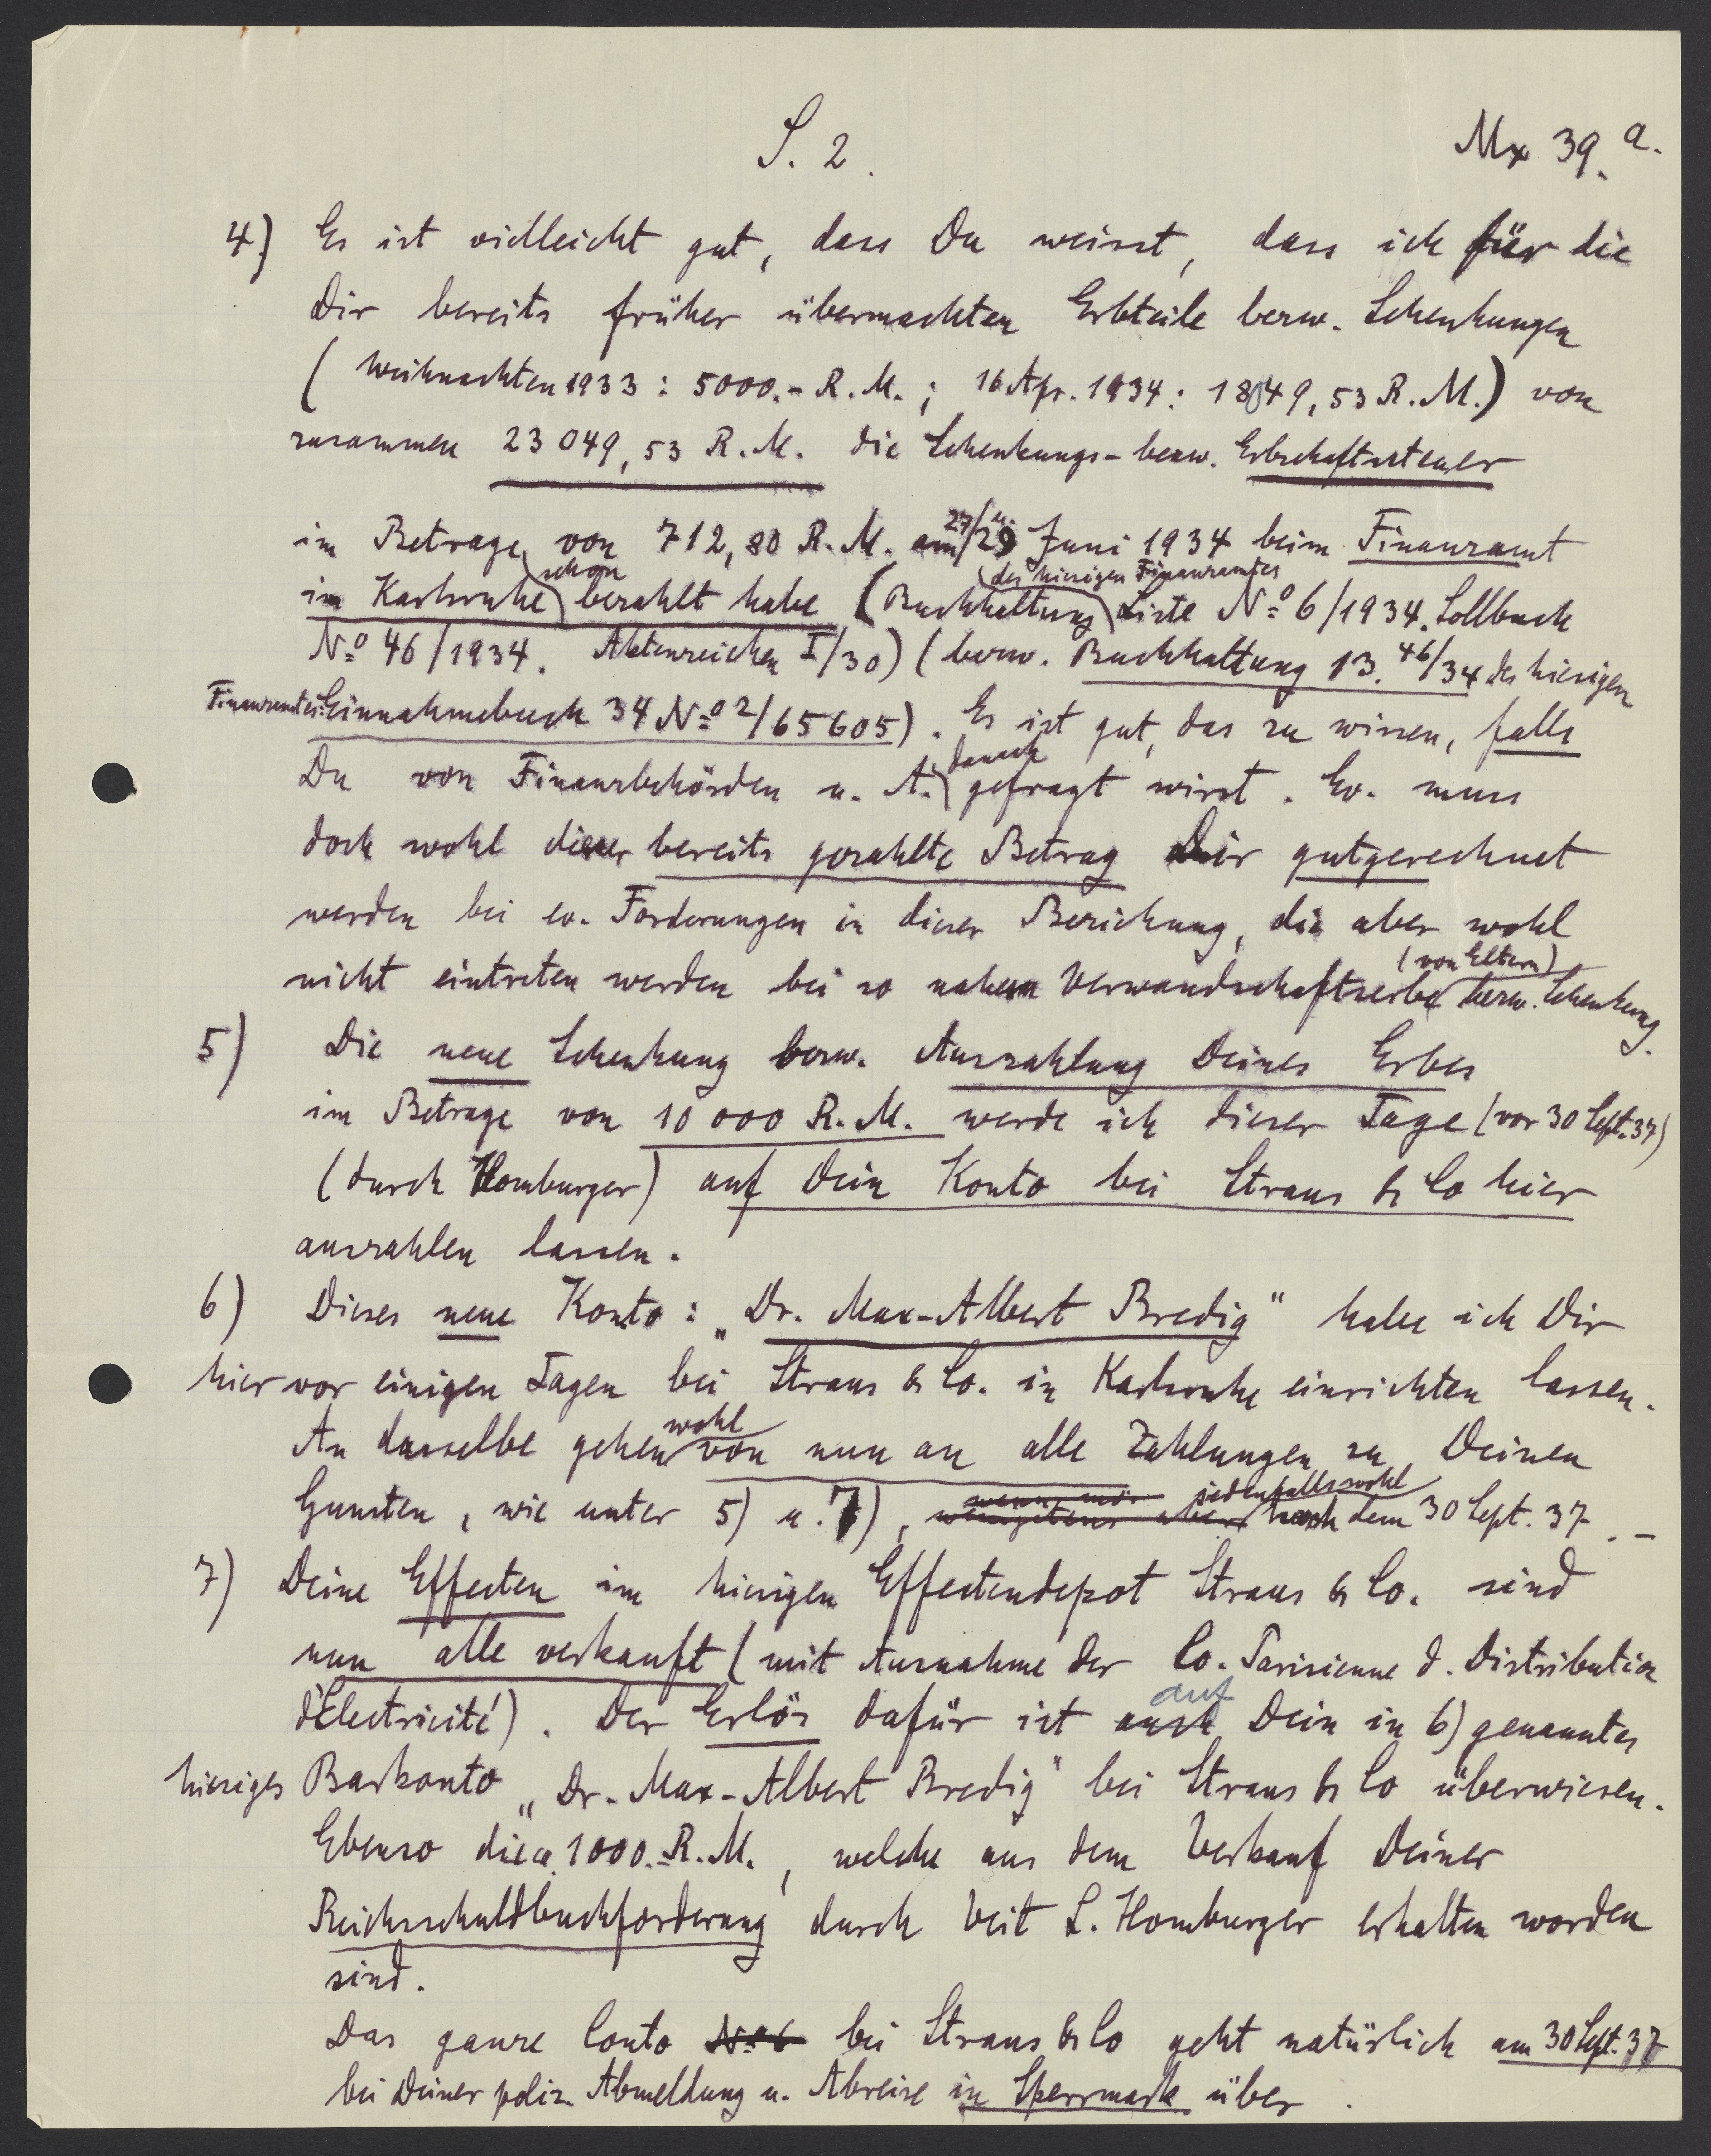 S. 2.
Mx 39.a.
4) Es ist vielleicht gut, dass Du weisst, dass ich für die
Dir bereits früher übermachten Erbteile bezw. Schenkungen
(Weihnachten 1933: 5000.- R.M.; 16 Apr. 1934: 18049,53 R.M.) von
zusammen 23049,53 R.M. die Schenkungs- bezw. Erbschaftssteuer
im Betrage von 712,80 R.M. am 27/u. 29 Juni 1934 beim Finanzamt
in Karlsruhe schon bezahlt habe (Buchhaltung des hiesigen Finanzamtes Liste No 6/1934. Sollbuch
No 46/1934. Aktenzeichen I/30) (bezw. Buchhaltung 13. 46/34 des hiesigen
Finanzamtes: Einnahmebuch 34 No 2/65605). Es ist gut, das zu wissen, falls
Du von Finanzbehörden u. A. danach gefragt wirst. Ev. muss
doch wohl dieser bereits gezahlte Betrag Dir gutgerechnet
werden bei ev. Forderungen in dieser Beziehung, die aber wohl
nicht eintreten werden bei so nahem Verwandschaftserbe (von Eltern) bezw. Schenkung.
5) Die neue Schenkung bezw. Auszahlung Deines Erbes
im Betrage von 10000 R.M. werde ich dieser Tage (vor 30 Sept. 37)
(durch Homburger) auf Dein Konto bei Straus & Co hier
auszahlen lassen.
6) Dieses neue Konto: „Dr. Max-Albert Bredig" habe ich Dir
hier vor einigen Tagen bei Straus & Co. in Karlsruhe einrichten lassen.
An dasselbe gehen wohl von nun an alle Zahlungen zu Deinen
Gunsten, wie unter 5) u. 7), wenigstens aber jedenfalls wohl nach dem 30 Sept. 37. -
7) Deine Effecten im hiesigen Effectendepot Straus & Co. sind
nun alle verkauft (mit Ausnahme der Co. Parisienne d. Distribution
d'Electricité). Der Erlös dafür ist auch auf Dein in 6) genanntes
hiesiges Barkonto „Dr. Max-Albert Bredig" bei Straus & Co überwiesen.
Ebenso die ca. 1000.- R.M., welche aus dem Verkauf Deiner
Reichsschuldbuchforderung durch Veit L. Homburger erhalten worden
sind.
Das ganze Conto No 6 bei Straus & Co geht natürlich am 30 Sept. 37
bei Deiner poliz. Abmeldung u. Abreise in Sperrmark über.